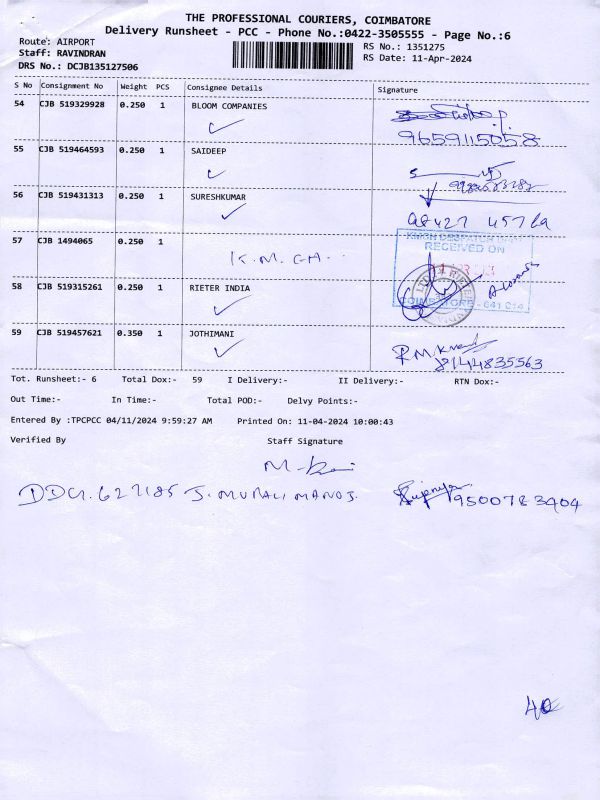 THE PROFESSIONAL COURIERS, COIMBATORE
Delivery Runsheet - PCC - Phone No.:0422-3505555 - Page No.:6
Route: AIRPORT
RS No.: 1351275
Staff: RAVINDRAN
RS Date: 11-Apr-2024
DRS No.: DCJB135127506
S No Consignment No Weight PCS Consignee Details Signature
54 CJB 519329928 0.250 1 BLOOM COMPANIES
9659115058
55 CJB 519464593 0.250 1 SAIDEEP
56 CJB 519431313 0.250 1 SURESHKUMAR
57 CJB 1494065 0.250 1 K.M.CH..
KMCH DESPATCH
RECEIVED ON
COIMBATORE - 641 014
58 CJB 519315261 0.250 1 RIETER INDIA
59 CJB 519457621 0.350 1 JOTHIMANI
8144835563
Tot. Runsheet:- 6 Total Dox:- 59 I Delivery:- II Delivery:- RTN Dox:-
Out Time:- In Time:- Total POD:- Delvy Points:-
Entered By :TPCPCC 04/11/2024 9:59:27 AM Printed On: 11-04-2024 10:00:43
Verified By Staff Signature
627185 J. MURALI MANOJ. 9500783404